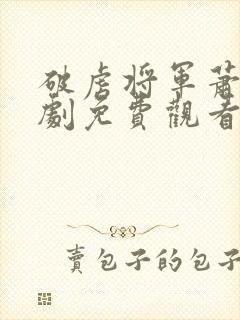 破虜将军蕭
劇免費觀看
賣包子的包子